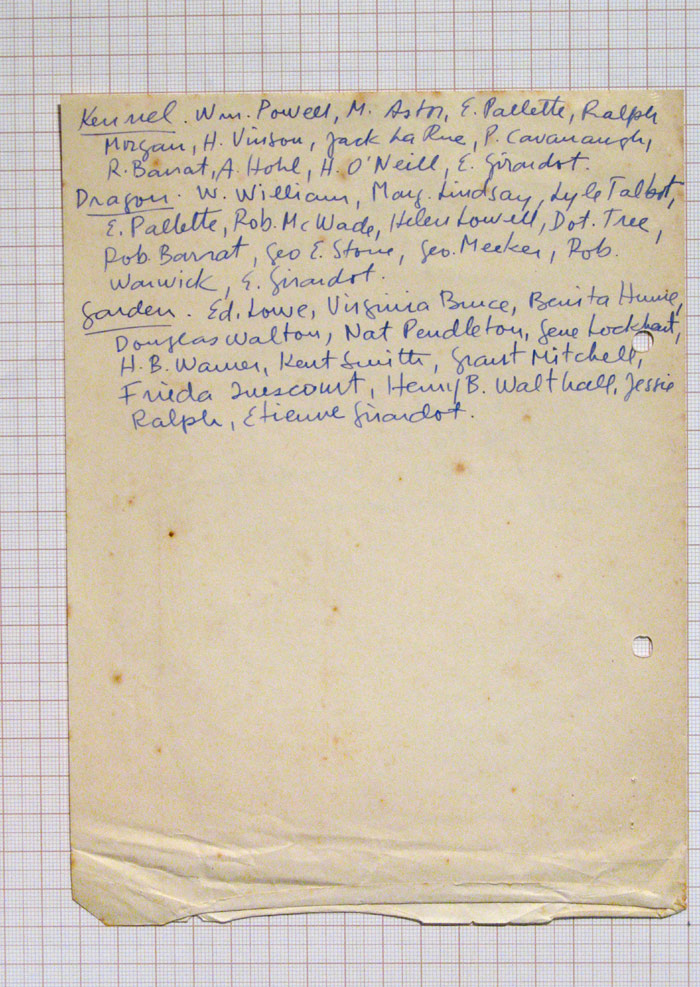 Kennel. Wm. Powell, M. Astor, E. Pallette, Ralph
Morgan, H. Vinson, Jack La Rue, P. Cavanaugh,
R. Barrat, A. Hohl, H. O'Neill, E. Girardot.
Dragon. W. William, Marg. Lindsay, Lyle Talbot,
E. Pallette, Rob. McWade, Helen Lowell, Dot. Tree,
Rob. Barrat, Geo E. Stone, Geo. Meeker, Rob.
Warwick, E. Girardot.
Garden. Ed. Lowe, Virginia Bruce, Benita Hume,
Douglas Walton, Nat Pendleton, Gene Lockhart,
H.B. Warner, Kent Smith, Grant Mitchell,
Frieda Inescourt, Henry B. Walthall, Jessie
Ralph, Etienne Girardot.